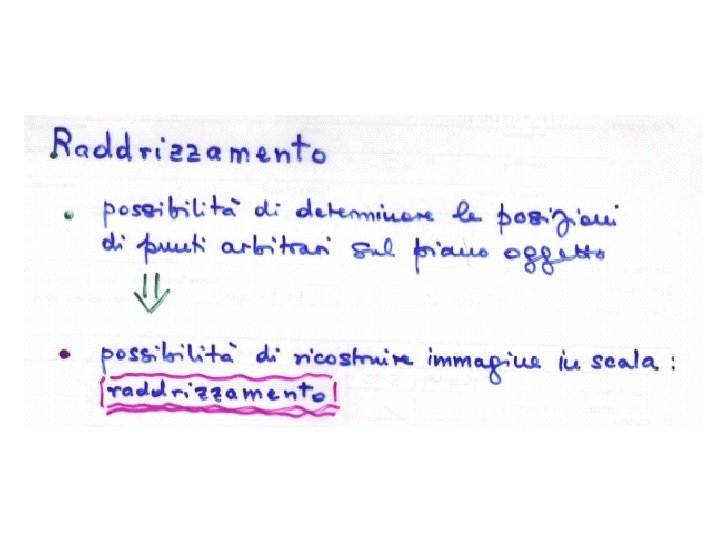 Raddrizzamento
• possibilità di determinare le posizioni
di punti arbitrari sul piano oggetto
⇓
• possibilità di ricostruire immagine in scala :
raddrizzamento